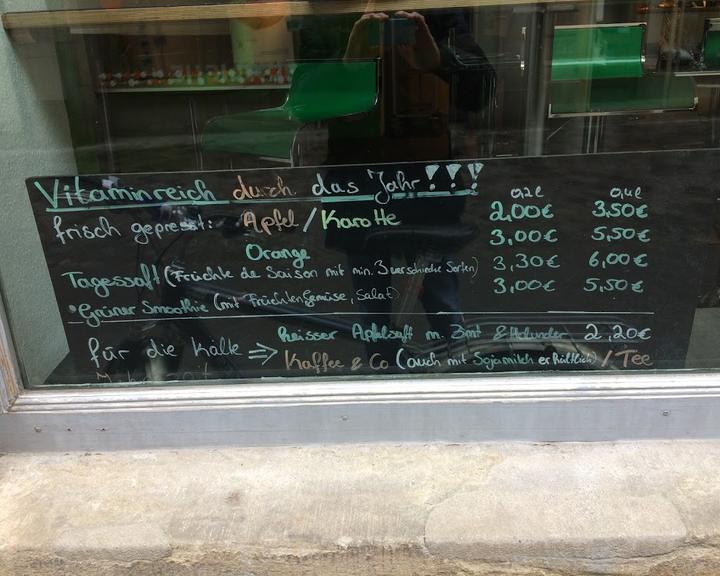 Vitaminreich durch das Jahr!!!
0,2l 0,4l
frisch gepresst: Apfel / Karotte 2,00€ 3,50€
Orange 3,00€ 5,50€
Tagessaft (Früchte de Saison mit min. 3 verschiedne Sorten) 3,30€ 6,00€
*Grüner Smoothie (mit Früchten Gemüse, Salat) 3,00€ 5,50€
für die Kälte ⇒ heisser Apfelsaft m. Zimt & Holunder 2,20€
Kaffee & Co (auch mit Sojamilch erhältlich) / Tee